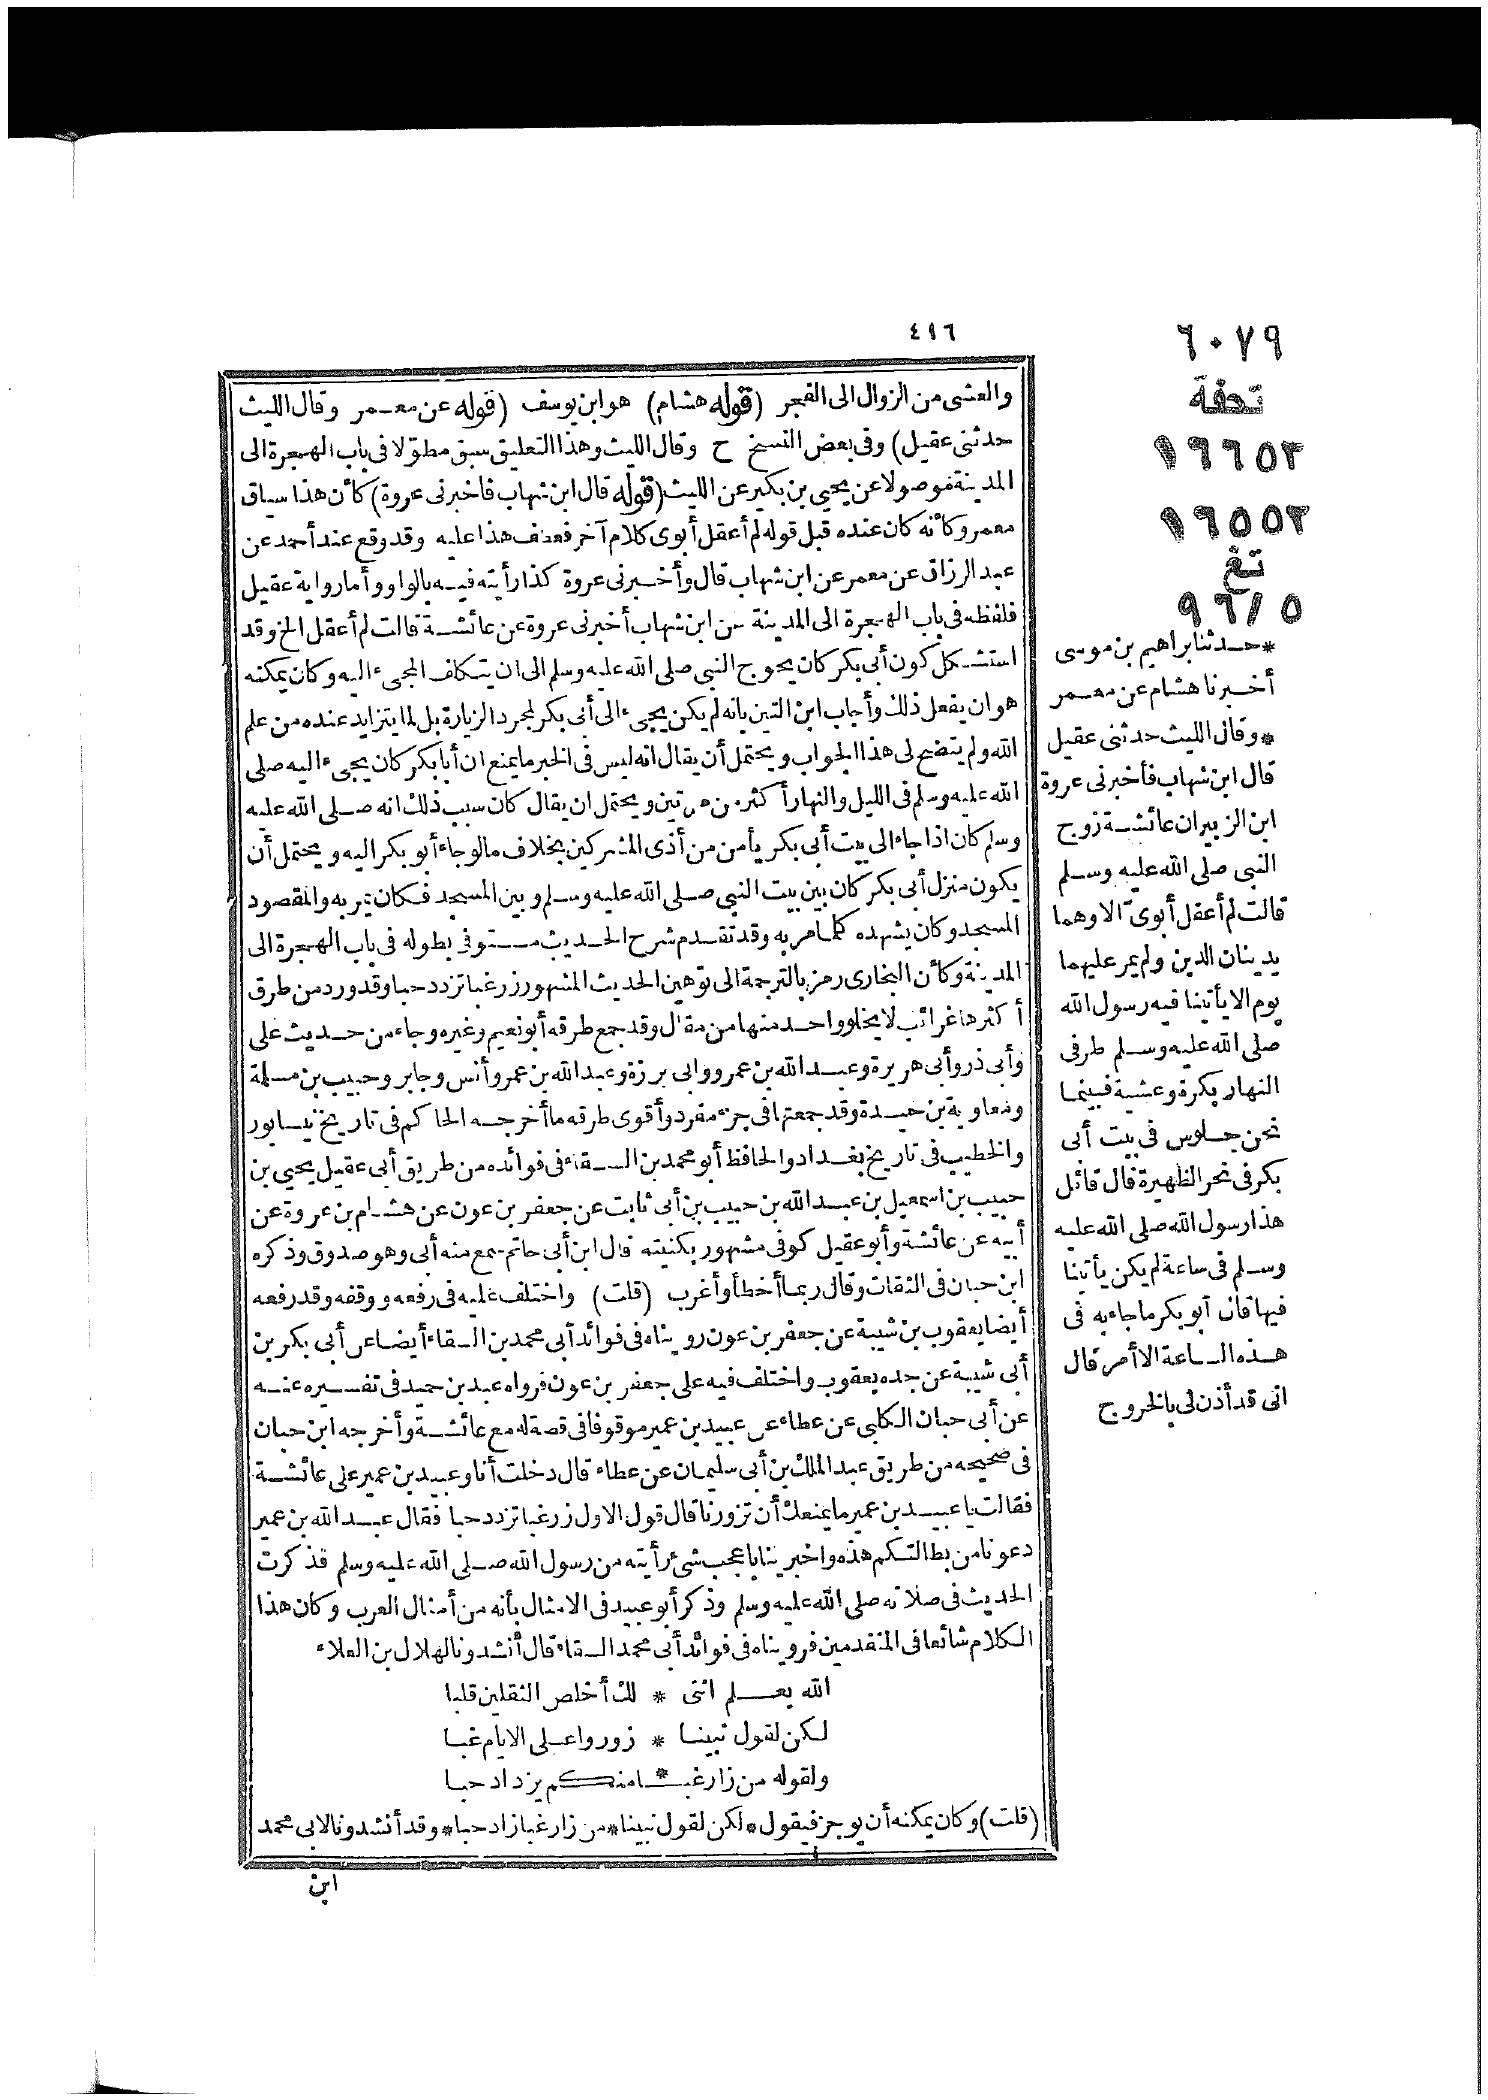 ٤١٦
٦٠٧٩
تحفة
١٦٦٥٣
١٦٥٥٢
تغ
٩٦/٥
* حدثنا ابراهيم بن موسى
أخبرنا هشام عن معمر
* وقال الليث حدثنى عقيل
قال ابن شهاب فأخبرنى عروة
ابن الزبير ان عائشة زوج
النبى صلى الله عليه وسلم
قالت لم أعقل أبوىّ الا وهما
يدينان الدين ولم يمر عليهما
يوم الا يأتينا فيه رسول الله
صلى الله عليه وسلم طرفى
النهار بكرة وعشية فبينما
نحن جلوس فى بيت أبى
بكر فى نحر الظهيرة قال قائل
هذا رسول الله صلى الله عليه
وسلم فى ساعة لم يكن يأتينا
فيها قال أبو بكر ما جاء به فى
هذه الساعة الا أمر قال
انى قد أذن لى بالخروج
والعشى من الزوال الى الفجر (قوله هشام) هو ابن يوسف (قوله عن معمر وقال الليث
حدثنى عقيل) وفى بعض النسخ ح وقال الليث وهذا التعليق سبق مطولا فى باب الهجرة الى
المدينة موصولا عن يحيى بن بكير عن الليث (قوله قال ابن شهاب فاخبرنى عروة) كأن هذا سياق
معمر وكأنه كان عنده قبل قوله لم أعقل أبوى كلام آخر فعطف هذا عليه وقد وقع عند أحمد عن
عبد الرزاق عن معمر عن ابن شهاب قال وأخبرنى عروة كذا رأيته فيه بالواو وأما رواية عقيل
فلفظه فى باب الهجرة الى المدينة عن ابن شهاب أخبرنى عروة عن عائشة قالت لم أعقل الخ وقد
استشكل كون أبى بكر كان يحوج النبى صلى الله عليه وسلم الى ان يتكلف المجىء اليه وكان يمكنه
هو ان يفعل ذلك وأجاب ابن التين بانه لم يكن يجىء الى أبى بكر لمجرد الزيارة بل لما يتزايد عنده من علم
الله ولم يتضح لى هذا الجواب ويحتمل أن يقال انه ليس فى الخبر ما يمنع ان أبا بكر كان يجىء اليه صلى
الله عليه وسلم فى الليل والنهار أكثر من مرتين ويحتمل ان يقال كان سبب ذلك انه صلى الله عليه
وسلم كان اذا جاء الى بيت أبى بكر يأمن من أذى المشركين بخلاف ما لو جاء أبو بكر اليه ويحتمل أن
يكون منزل أبى بكر كان بين بيت النبى صلى الله عليه وسلم وبين المسجد فكان يمر به والمقصود
المسجد وكان يشهده كلما مر به وقد تقدم شرح الحديث مستوفى بطوله فى باب الهجرة الى
المدينة وكأن البخارى رمز بالترجمة الى توهين الحديث المشهور زر غبا تزدد حبا وقد ورد من طرق
أكثرها غرائب لا يخلو واحد منها من مقال وقد جمع طرقه أبو نعيم وغيره وجاء من حديث على
وأبى ذر وأبى هريرة وعبد الله بن عمرو وابى برزة وعبد الله بن عمر وأنس وجابر وحبيب بن مسلمة
ومعاوية بن حيدة وقد جمعتها فى جزء مفرد وأقوى طرقه ما أخرجه الحاكم فى تاريخ نيسابور
والخطيب فى تاريخ بغداد والحافظ أبو محمد بن السقاء فى فوائده من طريق أبى عقيل يحيى بن
حبيب بن اسمعيل بن عبد الله بن حبيب بن أبى ثابت عن جعفر بن عون عن هشام بن عروة عن
أبيه عن عائشة وأبو عقيل كوفى مشهور بكنيته قال ابن أبى حاتم سمع منه أبى وهو صدوق وذكره
ابن حبان فى الثقات وقال ربما أخطأ وأغرب (قلت) واختلف عليه فى رفعه ووقفه وقد رفعه
أيضا يعقوب بن شيبة عن جعفر بن عون رويناه فى فوائد أبى محمد بن السقاء أيضا عن أبى بكر بن
أبى شيبة عن جده يعقوب واختلف فيه على جعفر بن عون فرواه عبد بن حميد فى تفسيره عنه
عن أبى حبان الكلبى عن عطاء عن عبيد بن عمير موقوفا فى قصة له مع عائشة وأخرجه ابن حبان
فى صحيحه من طريق عبد الملك بن أبى سليمان عن عطاء قال دخلت أنا وعبيد بن عمير على عائشة
فقالت يا عبيد بن عمير ما يمنعك أن تزورنا قال قول الاول زر غبا تزدد حبا فقال عبد الله بن عمير
دعونا من بطالتكم هذه واخبرينا باعجب شئ رأيته من رسول الله صلى الله عليه وسلم فذكرت
الحديث فى صلاته صلى الله عليه وسلم وذكر أبو عبيد فى الامثال بأنه من أمثال العرب وكان هذا
الكلام شائعا فى المتقدمين فروينا ه فى فوائد أبى محمد السقاء قال أنشدونا لهلال بن العلاء
الله يعلم اننى * لك أخلص الثقلين قلبا
لكن لقول نبينا * زوروا على الايام غبا
ولقوله من زار غبا * منكم يزداد حبا
(قلت) وكان يمكنه أن يوجز فيقول * لكن لقول نبينا * من زار غبا زاد حبا * وقد أنشدونا لابى محمد
ابن